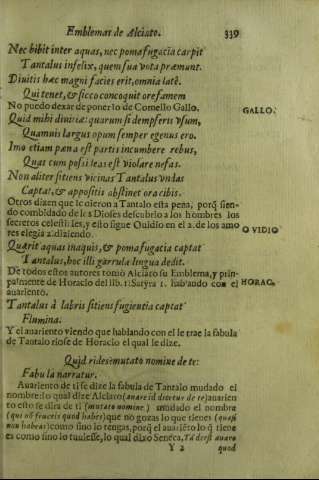 Emblemas de Alciato. 339
Nec bibit inter aquas, nec poma fugacia carpit
Tantalus infelix, quem sua vota præmunt.
Diuitis hæc magni facies erit, omnia latè.
Qui tenet, & sicco concoquit ore famem
No puedo dexar de poner lo de Cornelio Gallo. GALLO.
Quid mihi diuitiæ: quarum si dempseris vsum,
Quamuis largus opum semper egenus ero.
Imo etiam pœna est partis incumbere rebus,
Quas cum possideas est violare nefas.
Non aliter sitiens vicinas Tantalus vndas
Captat, & appositis abstinet ora cibis.
Otros dizen que le dieron a Tantalo esta pena, porq̃ sien-
do combidado de los Dioses descubrio a los hombres los
secretos celestiales, y esto sigue Ouidio en el 2. de los amo O VIDIO
res elegia 2. diziendo.
Quærit aquas in aquis, & poma fugacia captat
Tantalus, hoc illi garrula lingua dedit.
De todos estos autores tomò Alciato su Emblema, y prin-
palmente de Horacio del lib. 1. Satyra 1. hablando con el HORAC.
auariento.
Tantalus à labris sitiens fugientia captat
Flumina.
Y el auariento viendo que hablando con el le trae la fabula
de Tantalo riose de Horacio el qual le dize.
Quid rides? mutato nomine de te:
Fabula narratur.
Auariento de ti se dize la fabula de Tantalo mudado el
nombre: lo qual dize Alciato (auare id dicetur de te) auarien
to esto se dira de ti (mutato nomine) mudado el nombre
(qui of fructis quod habes) que no gozas lo que tienes (quasi
non habeas) como sino lo tengas, porq̃ el auariẽto lo q̃ tiene
es como sino lo tuuiesse, lo qual dixo Seneca, Tã deest auaro
Y 2 quod